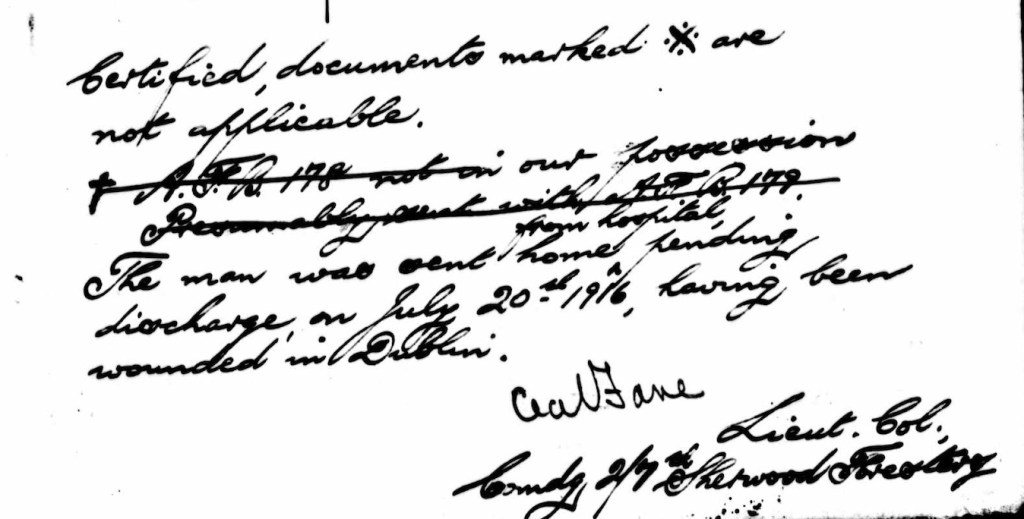 Certified, documents marked ※ are
not applicable.
† A. F. B. 178 not in our possession
Presumably sent with A.F. B. 179.
from hospital,
The man was sent home pending
discharge, on July 20th 1916, having been
wounded in Dublin.
Fane
Lieut. Col.,
Comdg 2/7th Sherwood Foresters